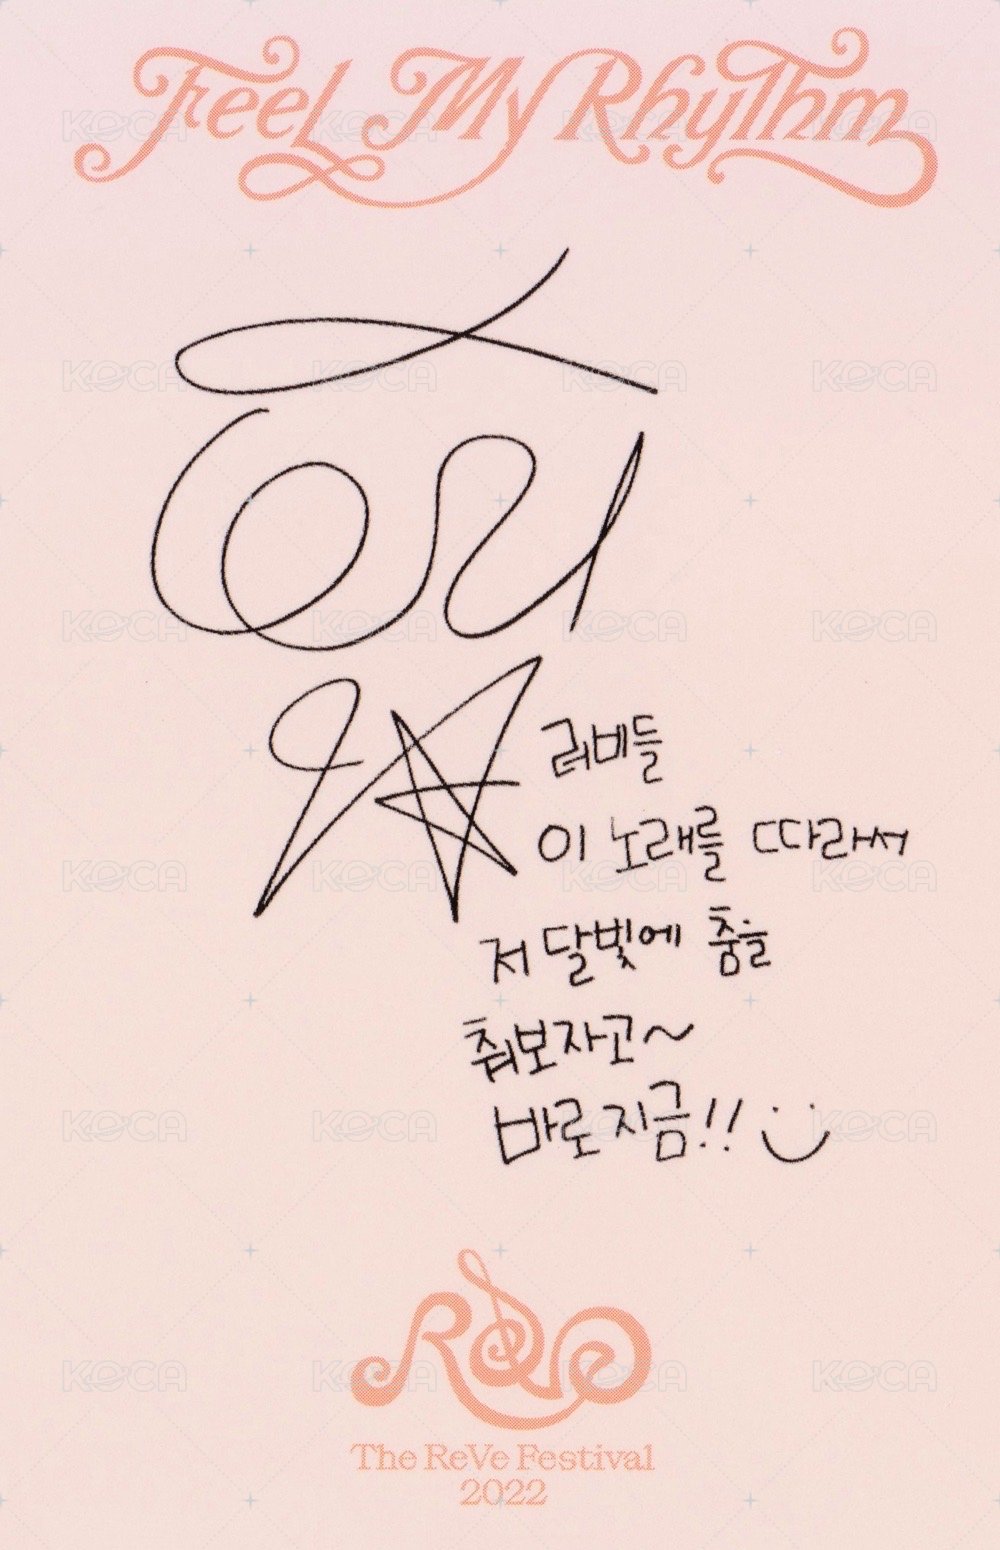 Feel My Rhythm
러비들
이 노래를 따라서
저 달빛에 춤을
춰보자고~
바로지금!!
ReVe
The ReVe Festival
2022
KOCA